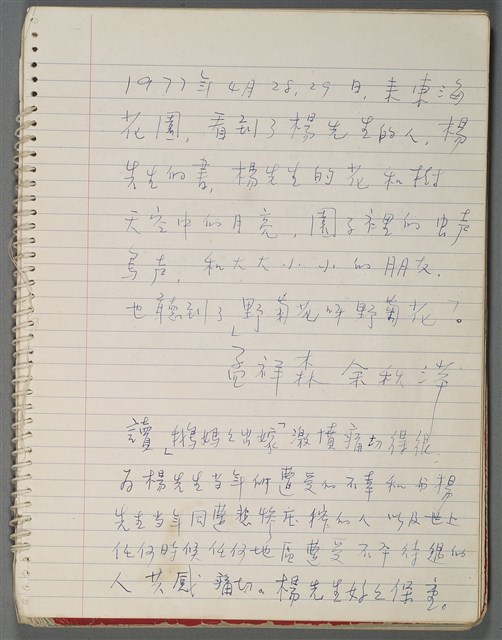 1977年4月28,29日,来東海
花園,看到了楊先生的人,楊
先生的書,楊先生的花和樹
天空中的月亮,園子裡的虫声
鳥声,和大大小小的朋友.
也聽到了「野菊花呀野菊花」。
孟祥森 余秋萍
讀「鵝媽媽出嫁」激憤痛切得很,
為楊先生當年所遭受的不幸和與楊
先生當年同遭悲慘壓榨的人以及世上
任何時候任何地區遭受不平待遇的
人共感痛切。楊先生好好保重。